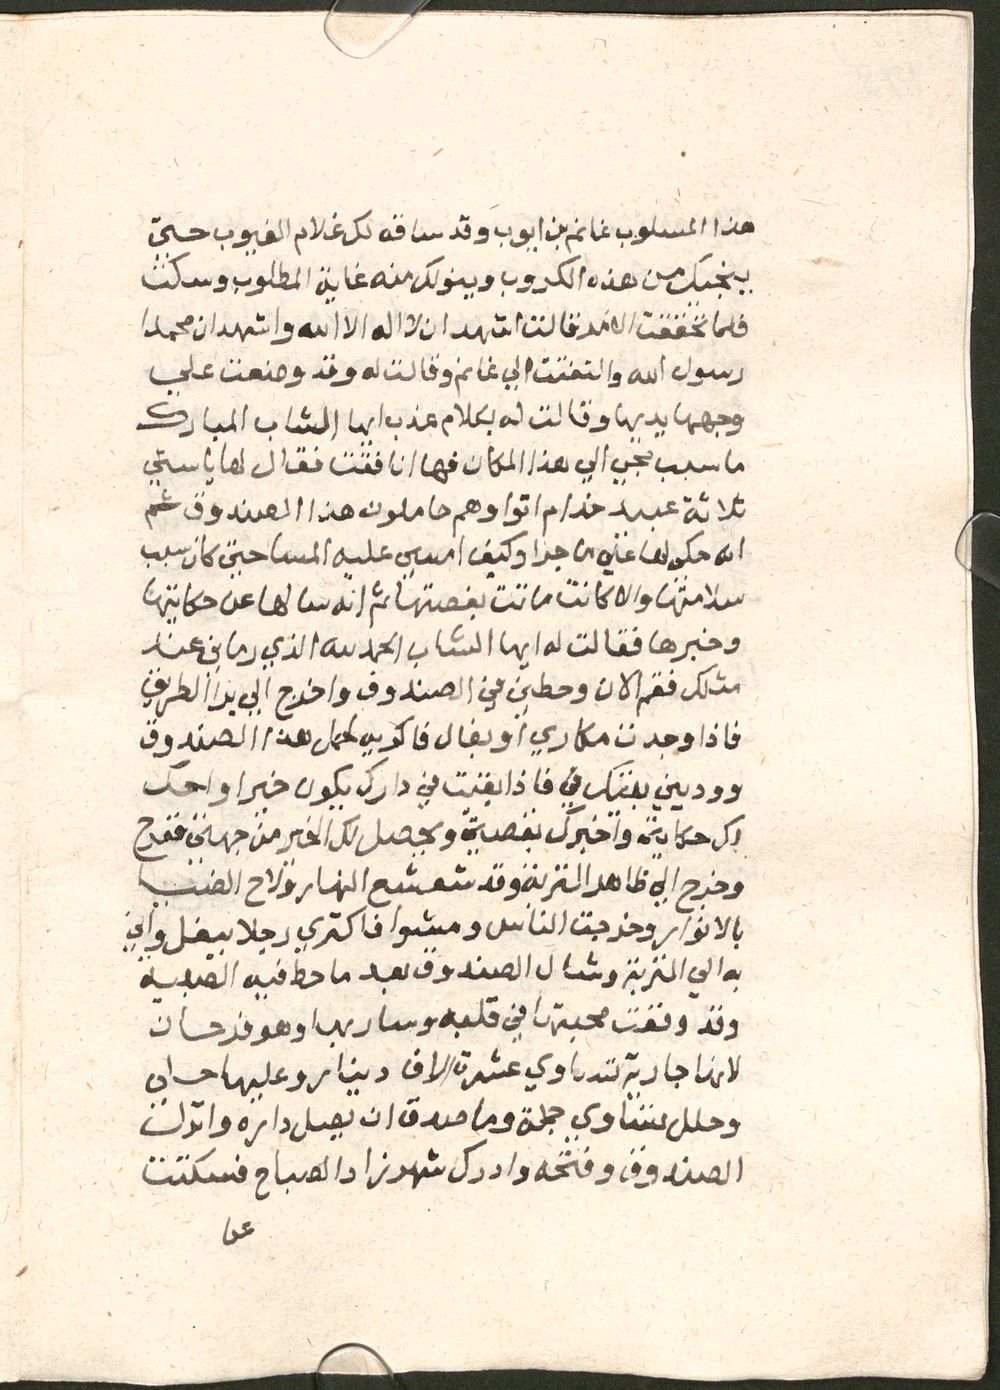 هذا المسلوب غانم بن ايوب وقد ساقه لك علام الغيوب حتى
ينجيك من هذه الكروب وينولك منه غاية المطلوب وسكت
فلما تحققت الامر قالت اشهد ان لا اله الا الله واشهد ان محمدا
رسول الله والتفتت الي غانم وقالت له وقد وضعت علي
وجهها يديها وقالت له بكلام عذب ايها الشاب المبارك
ما سبب مجي الي هذا المكان فها انا فقت فقال لها يا ستي
ثلاثة عبيد خدام اتوا وهم حاملون هذا الصندوق ثم
انه حكى لها علي ما جرا وكيف امسى عليه المسا حتى كان سبب
سلامتها والا كانت ماتت بغصتها ثم انه سالها عن حكايتها
وخبرها فقالت له ايها الشاب الحمد لله الذي رماني عند
مثلك فقم الان وحطني في الصندوق واخرج الي برا الطريق
فاذا وجدت مكاري او بغال فاكريه لحمل هذا الصندوق
ووديني بيتك فاذا بقيت في دارك يكون خيرا واحك
لك حكايتي واخبرك بقصتي ويحصل لك الخير من جهتي ففرح
وخرج الي ظاهر التربة وقد شعشع النهار ولاح الضيا
بالانوار وخرجت الناس ومشوا فاكتري رجلا ببغل واتي
به الي التربة وشال الصندوق بعد ما حط فيه الصبية
وقد وقعت محبتها في قلبه وسار بها وهو فرحان
لانها جارية تساوي عشرة الاف دينار وعليها حلي
وحلل يساوي جملة وما صدق ان يصل داره وانزل
الصندوق وفتحه وادرك شهرزاد الصباح فسكتت
عن